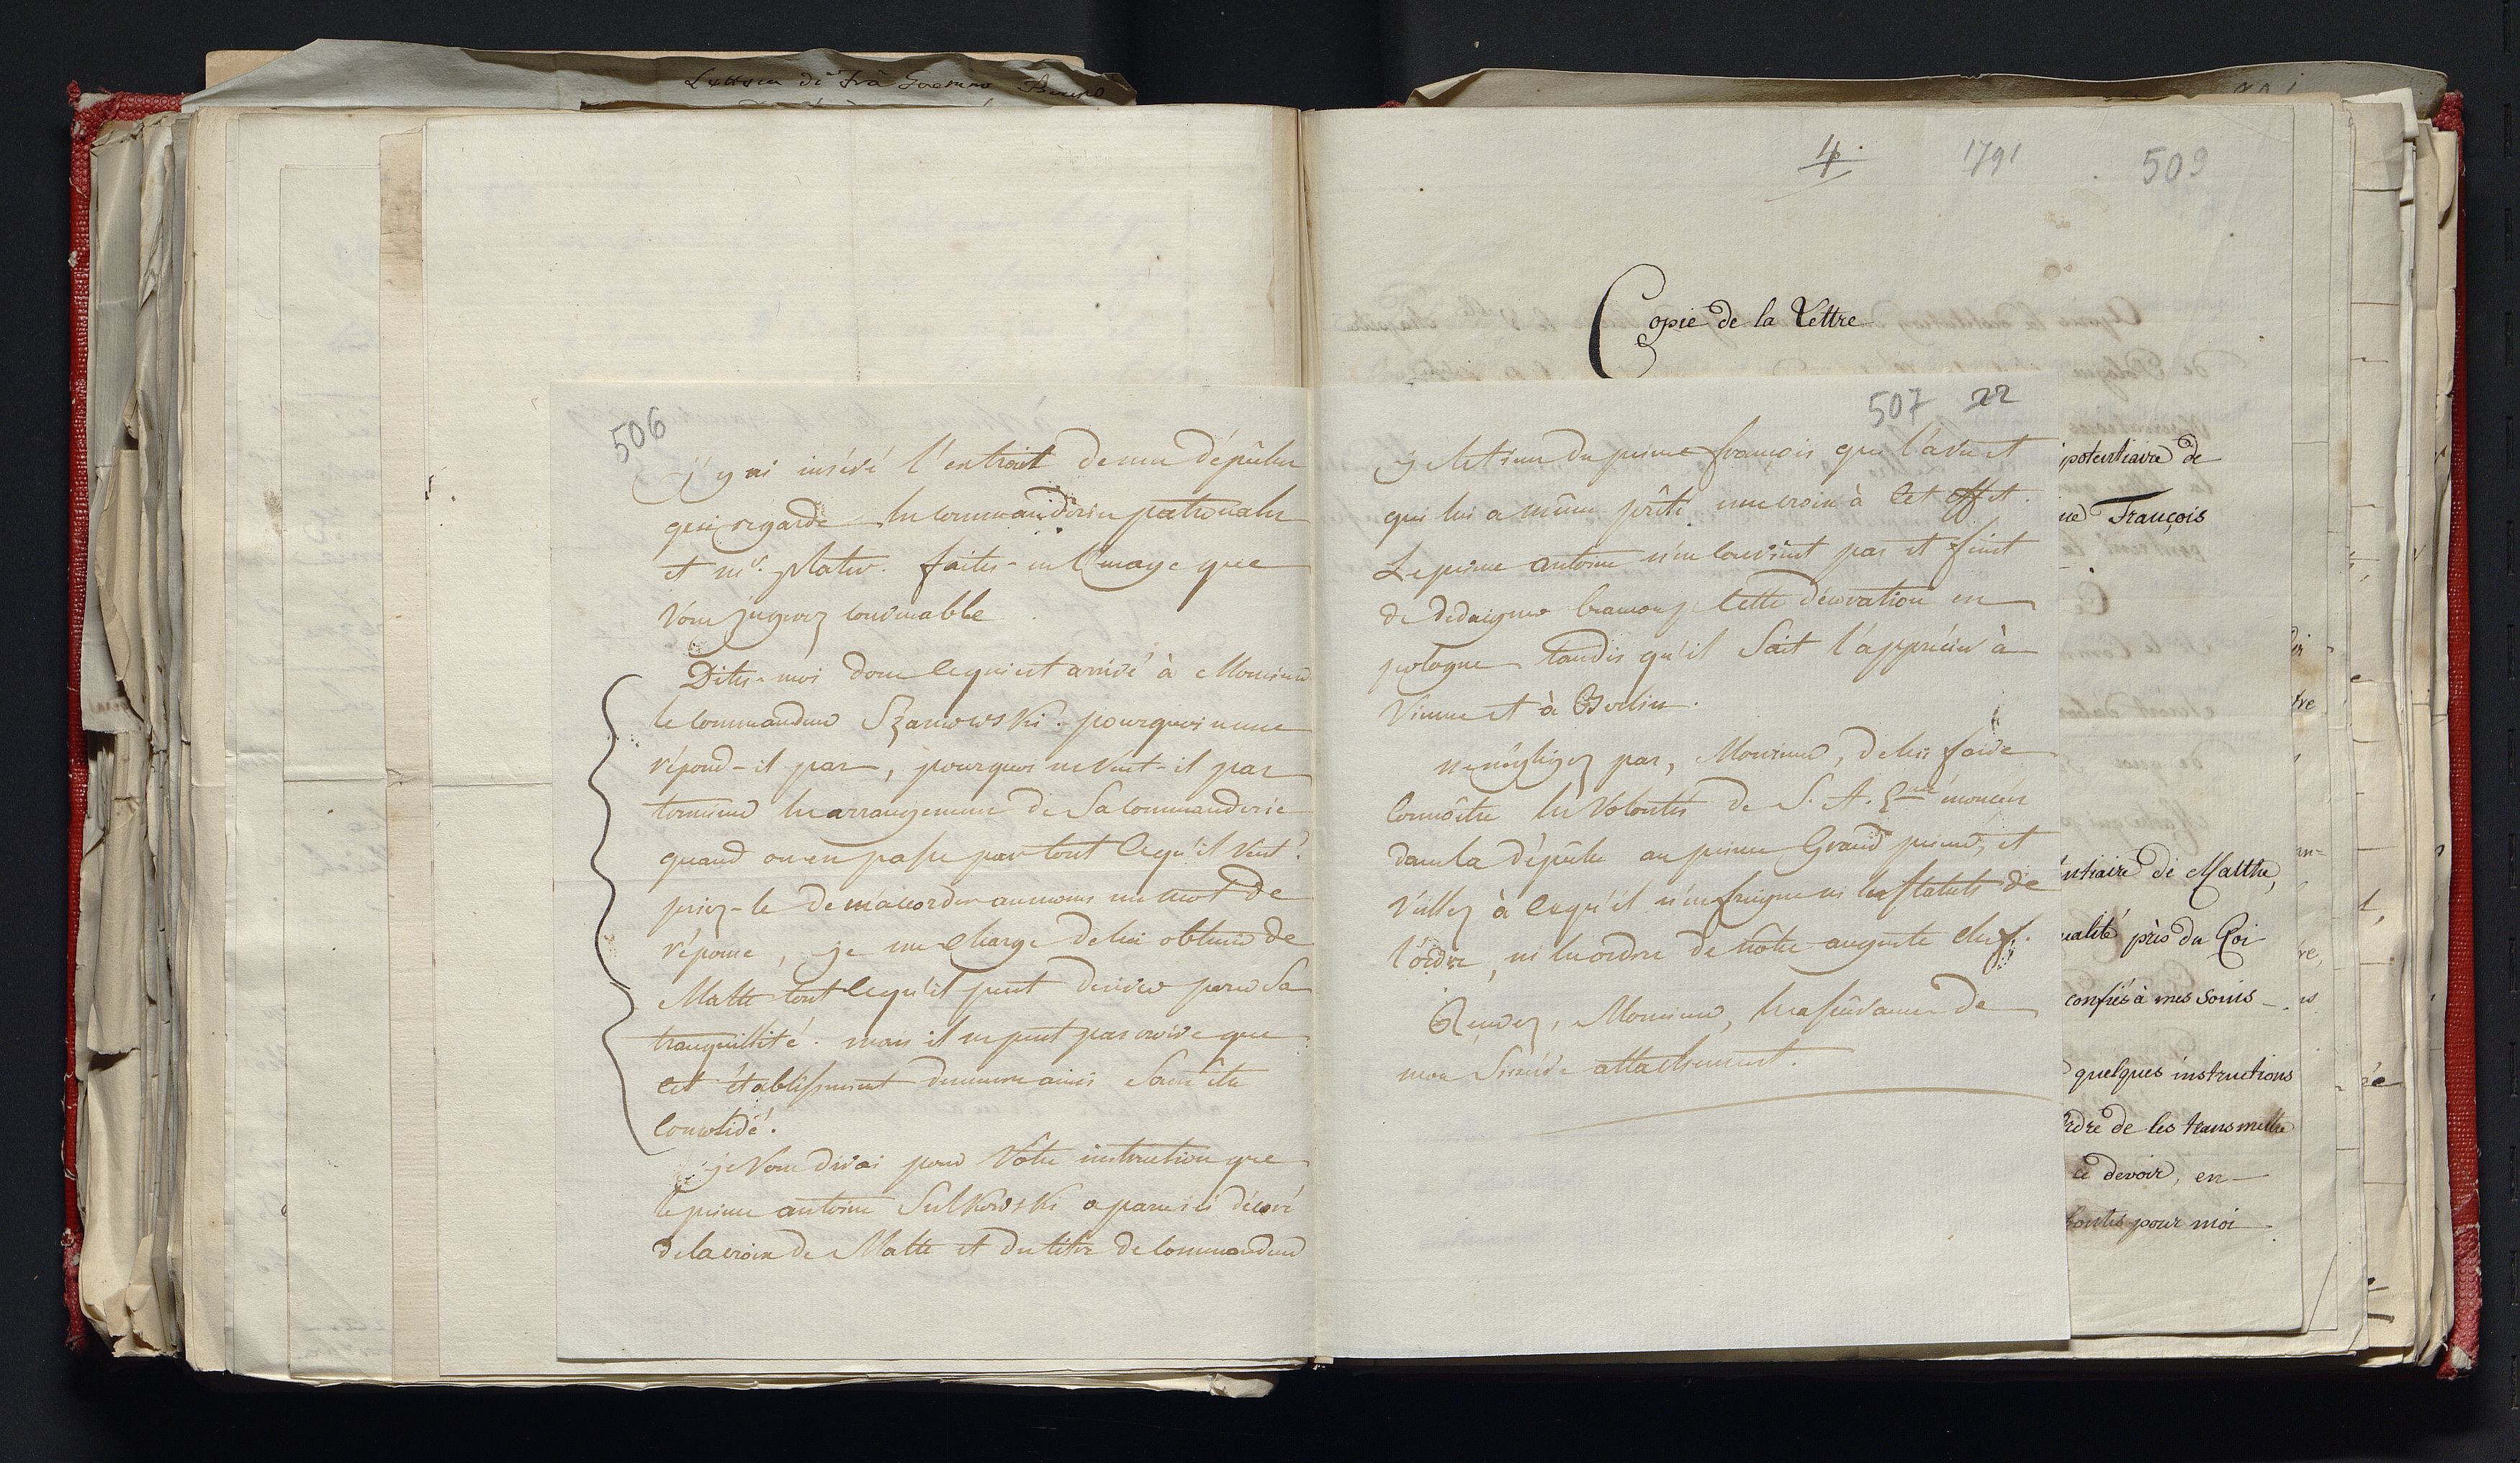 Lettera di Frà
506
j'y ai inséré l'extrait de mes dépêches
qui regarde les commanderies patronales
et mr. plater. faites-en l'usage que
Vous jugerez convenable
Dites-moi donc ce qui est arrivé à Monsieur
le Commandeur Szaniawski. pourquoi ne me
répond-il pas, pourquoi ne veut-il pas
terminer les arrangemens de Sa Commanderie
quand on en passe par tout ce qu'il veut?
priez-le de m'accorder au moins un mot de
réponse, je me charge de lui obtenir de
Malte tout ce qu'il peut desirer pour Sa
tranquillité. mais il ne peut pas croire que
cet établissement demeure ainsi Sans être
Consolidé.
je Vous dirai pour Vôtre instruction que
le prince antoine Sulkowski a paru ici décoré
de la croix de Malte et du titre de Commandeur
4. 1791 509
Copie de la Lettre
507 22
je le tiens du prince françois qui l'a vu et
qui lui a même prêté une croix à Cet effet.
Le prince antoine n'en convient pas et feint
de dedaigner beaucoup Cette décoration en
pologne tandis qu'il Sait l'apprécier à
Vienne et à Berlin.
ne négligez pas, Monsieur, de lui faire
Connôitre les Volontés de S. A. Eme énoncées
dans la dépêche au prince Grand prieur, et
Veillez à ce qu'il n'enfreigne ni les Statuts de
l'ordre, ni les ordres de nôtre auguste chef.
Recevez, Monsieur, les assûrances de
mon Sincère attachement.
ipotentiaire de
François
entiaire de Malthe,
ualité près du Roi
confiés à mes soins
quelques instructions
rdre de les transmettre
ce devoir, en
bontés pour moi